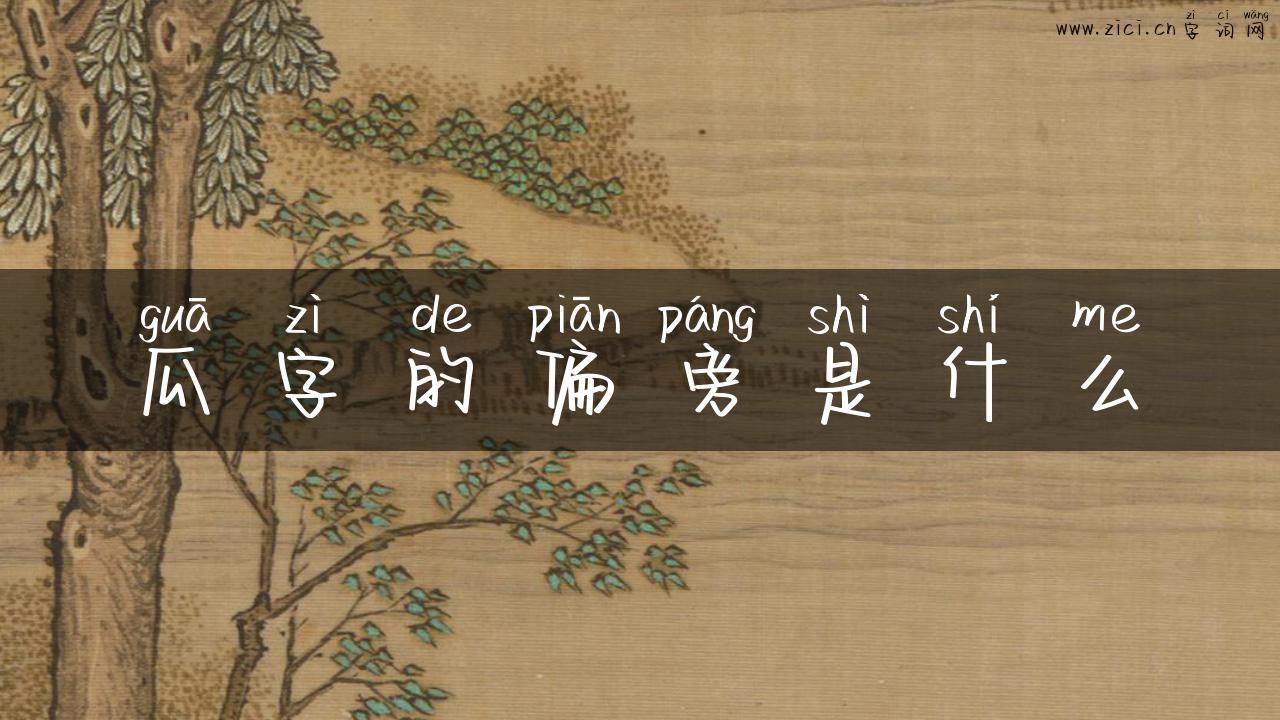 zì cí wǎng
www.zici.cn 字词网
guā zì de piān páng shì shí me
瓜字的偏旁是什么